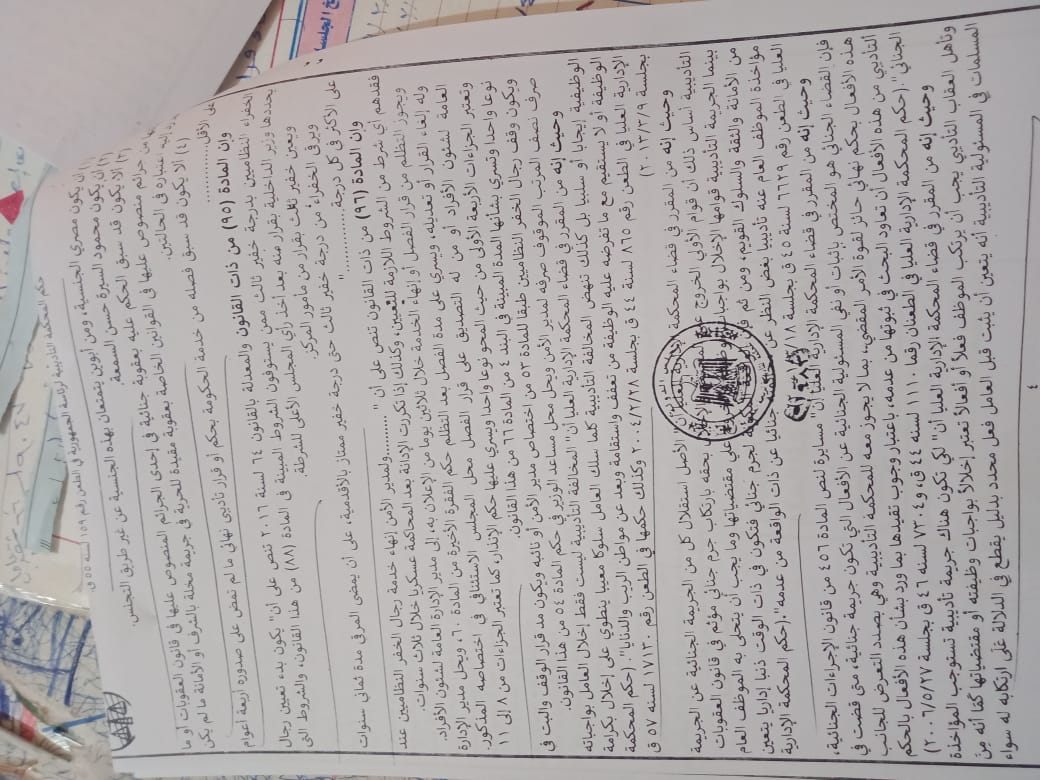 حكم المحكمة التأديبية لرئاسة الجمهورية في الطعن رقم ١٥٩ لسنة ٥٥ ق
(١) أن يكون مصري الجنسية، ومن أبوين يتمتعان بهذه الجنسية عن غير طريق التجنس.
(٢) أن يكون محمود السيرة حسن السمعة
(٣) ألا يكون قد سبق الحكم عليه بعقوبة جنائية في إحدى الجرائم المنصوص عليها في قانون العقوبات أو ما
من جرائم منصوص عليها في القوانين الخاصة بعقوبة مقيدة للحرية في جريمة مخلة بالشرف أو الأمانة ما لم يكن
رد إليه اعتباره في الحالتين.
(٤) ألا يكون قد سبق فصله من خدمة الحكومة بحكم أو قرار تأديبي نهائي ما لم تمض على صدوره أربعة أعوام
على الأقل............
وإن المادة (٩٥) من ذات القانون والمعدلة بالقانون ٦٤ لسنة ٢٠١٦ تنص على أن" يكون بدء تعيين رجال
الخفراء النظاميين بدرجة خفير ثالث ممن يستوفون الشروط المبينة في المادة (٨٨) من هذا القانون، والشروط التي
يحددها وزير الداخلية بقرار منه بعد أخذ رأي المجلس الأعلى للشرطة.
ويعين خفير ثالث بقرار من مأمور المركز.
ويرقى الخفراء من درجة خفير ثالث حتى درجة خفير ممتاز بالأقدمية، على أن يمضي المرقى مدة ثماني سنوات
على الأكثر في كل درجة............"
وإن المادة (٩٦) من ذات القانون تنص على أن "........ولمدير الأمن إنهاء خدمة رجال الخفر النظاميين عند
فقدهم أي شرط من الشروط اللازمة للتعيين، وكذلك إذا تكررت الإدانة بعد المحاكمة عسكريا خلال ثلاث سنوات.
ويجوز التظلم من قرار الفصل أو إنهاء الخدمة خلال ثلاثين يوما من إعلان به، إلى مدير الإدارة العامة لشئون الأفراد.
وله إلغاء القرار أو تعديله، ويسري على مدة الفصل بعد التظلم حكم الفقرة الأخيرة من المادة ٦٠، ويحل مدير الإدارة
العامة لشئون الأفراد أو من له التصديق على قرار الفصل محل المجلس الاستئنافي في اختصاصه المذكور.
وتعتبر الجزاءات الأربعة الأولى من حيث المحو نوعا واحدا ويسري عليها حكم الإنذار، كما تعتبر الجزاءات من ٨ إلى ١١
نوعا واحدا وتسري بشأنها المدة المبينة في البند ٤ من المادة ٦٦ من هذا القانون.
ويكون وقف رجال الخفر النظاميين طبقا للمادة ٥٣ من اختصاص مدير الأمن أو نائبه ويكون مد قرار الوقف والبت في
صرف نصف المرتب الموقوف صرفه لمدير الأمن ويحل محل مساعد الوزير في حكم المادة ٥٤ من هذا القانون.
وحيث إنه من المقرر في قضاء المحكمة الإدارية العليا أن" المخالفة التأديبية ليست فقط إخلال العامل بواجباته
الوظيفية إيجابا أو سلبيا بل كذلك تنهض المخالفة التأديبية كلما سلك العامل سلوكا معيبا ينطوي على إخلال بكرامة
الوظيفة أو لا يستقيم مع ما تفرضه عليه الوظيفة من تعفف واستقامة وبعد عن مواطن الريب والدنايا". (حكم المحكمة
الإدارية العليا في الطعن رقم ٨٦٥ لسنة ٤٤ ق بجلسة ٢٠٠٤/٢/٢٨ وكذلك حكمها في الطعن رقم ١٧١٣٠ لسنه ٥٧ ق
بجلسة ٢٠١٣/٣/٩)
وحيث إنه من المقرر في قضاء المحكمة الإدارية العليا أن" الأصل استقلال كل من الجريمة الجنائية عن الجريمة
التأديبية أساس ذلك أن قوام الأولى الخروج على بحقه بارتكاب جرم جنائي مؤثم في قانون العقوبات
بينما الجريمة التأديبية قوامها الإخلال بواجبات الوظيفة على مقتضياتها وما يجب أن يتحلى به الموظف العام
من الأمانة والثقة والسلوك القويم، ومن ثم فإن الواقعة لجرم جنائي فتكون في ذات الوقت ذنبا إداريا يتعين
مؤاخذة الموظف العام عنه تأديبيا بغض النظر عن جنائيا عن ذات الواقعة من عدمه".(حكم المحكمة الإدارية
العليا في الطعن رقم ٦٦٢٩ لسنة ٤٥ ق بجلسة
وحيث إنه من المقرر في قضاء المحكمة الإدارية العليا أن" مسايرة نص المادة ٤٥٦ من قانون الإجراءات الجنائية،
فإن القضاء الجنائي هو المختص بإثبات أو نفي المسئولية الجنائية عن الأفعال التي تكون جريمة جنائية، متى قضت في
هذه الأفعال بحكم نهائي حائز لقوة الأمر المقضي، بما لا يجوز معه للمحكمة التأديبية وهي بصدد التعرض للجانب
التأديبي من هذه الأفعال أن تعاود البحث في ثبوتها من عدمه، باعتبار وجوب تقيدها بما ورد بشأن هذه الأفعال بالحكم
الجنائي".(حكم المحكمة الإدارية العليا في الطعنان رقما ١١١٠ لسنه ٤٤ ق، ٧٣٠٤ لسنه ٤٦ ق بجلسة ٢٠٠٦/٥/٢٧)
وحيث إنه من المقرر في قضاء المحكمة الإدارية العليا أن" لكي تكون هناك جريمة تأديبية تستوجب المؤاخذة
وتأهل العقاب التأديبي يجب أن يرتكب الموظف فعلاً أو أفعالاً تعتبر إخلالاً بواجبات وظيفته أو مقتضياتها كما أنه من
المسلمات في المسئولية التأديبية أنه يتعين أن يثبت قبل العامل فعل محدد بدليل يقطع في الدلالة على ارتكابه له سواء
٤